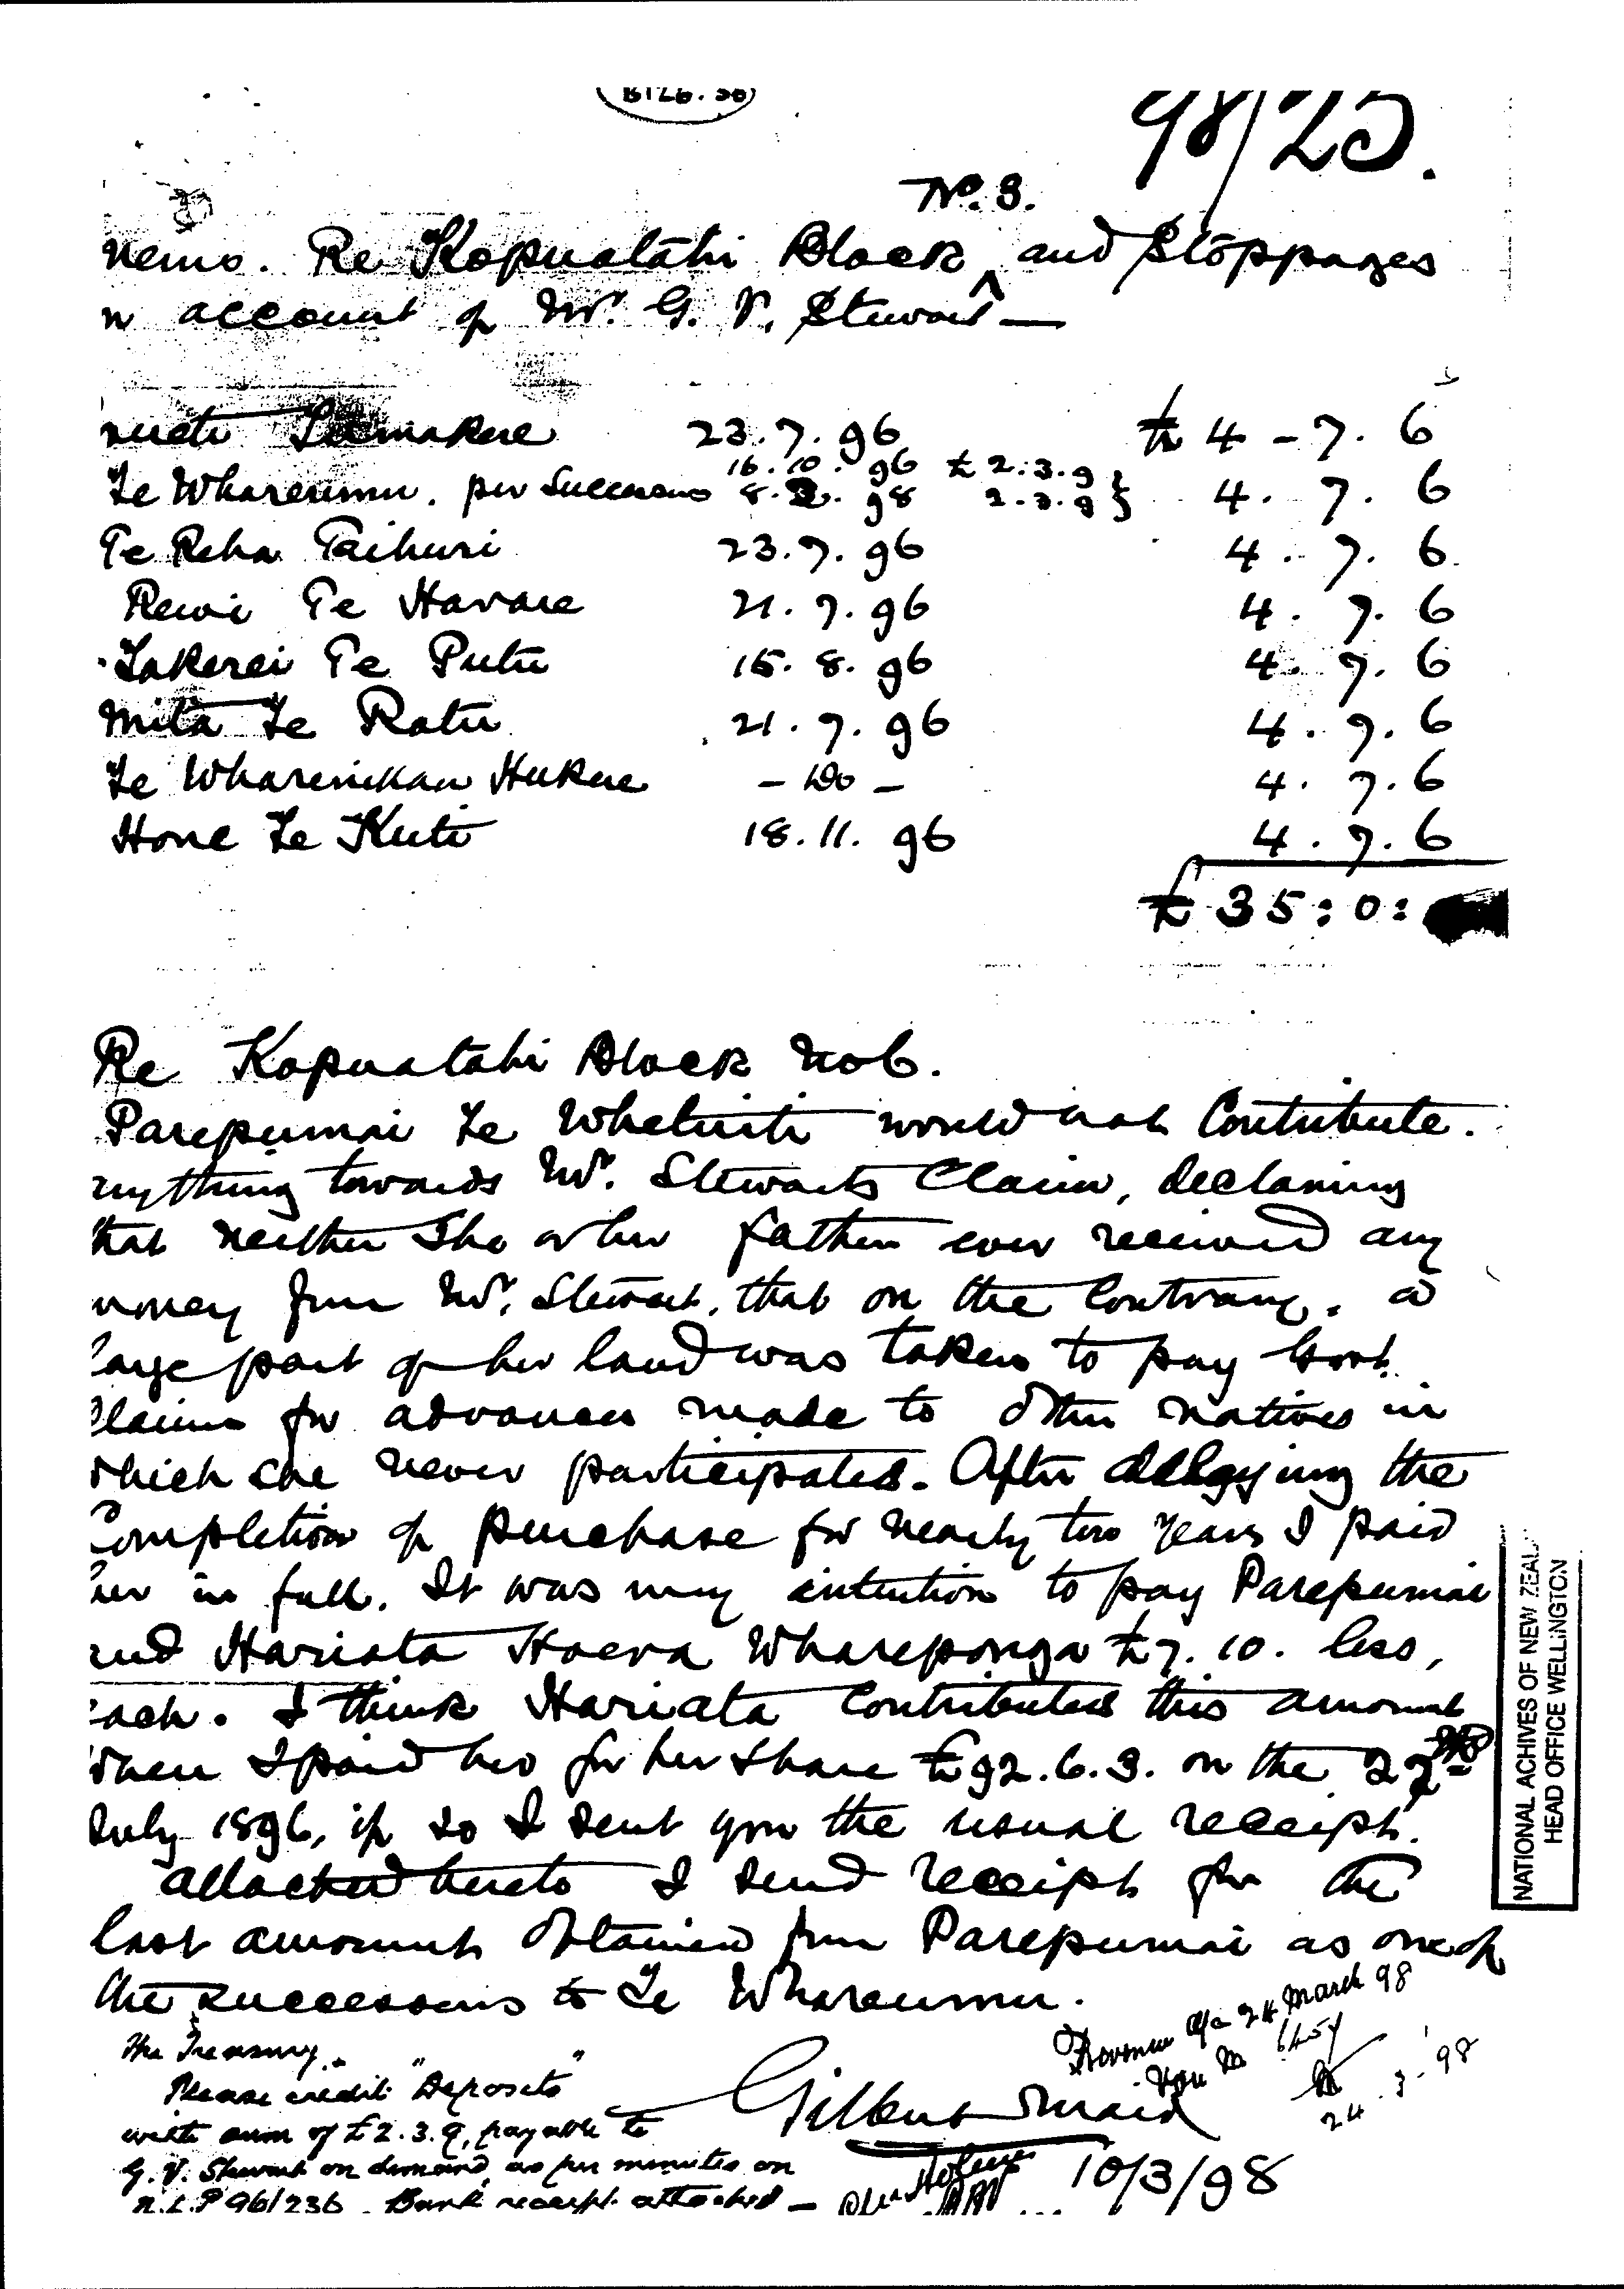 98/25.
No. 3.
Memo. Re Kopuatahi Block and Stoppages
account of Mr. G. V. Stewart —
23.7.96 £ 4 - 7. 6
16.10.96 £ 2:3.9 }
Te Whareumu. per Successors 8.2.98 2.3.9 } 4. 7. 6
Te Reha Taihuri 23.7.96 4. 7. 6.
Rewi Te Havare 21.7.96 4. 7. 6
Takerei Te Putu 15.8.96 4. 7. 6
Mita Te Ratu 21.7.96 4. 7. 6
Te Wharenikau Hukere – Do – 4. 7. 6
Hone Te Kuti 18.11.96 4. 7. 6
£ 35:0:
Re Kopuatahi Block No 6.
Parepumai Te Whetuiti would not Contribute.
nything towards Mr. Stewarts Claim, declaring
that neither She or her father ever received any
money from Mr. Stewart, that on the Contrary, a
large part of her land was taken to pay Govt.
Claims for advances made to other natives in
which she never participated. After delaying the
Completion of purchase for nearly two years I paid
her in full. It was my intention to pay Parepumai
and Hariata Hoera Whareponga £7.10. less,
each. I think Hariata Contributed this amount
when I paid her for her Share £92.6.3. on the 22nd
July 1896, if so I sent you the usual receipt.
Attached hereto I send receipt for the
last amount obtained from Parepumai as one of
the successors to Te Whareumu.
The Treasury.
Please credit "Deposits"
with sum of £2.3.9, payable to
G. V. Stewart on demand, as per minutes on
N.L.P 96/236. Bank receipt attached –
Gilbert Mair
10/3/98
Revenue a/c 24 March 98
24.3.98
NATIONAL ACHIVES OF NEW ZEAL
HEAD OFFICE WELLINGTON